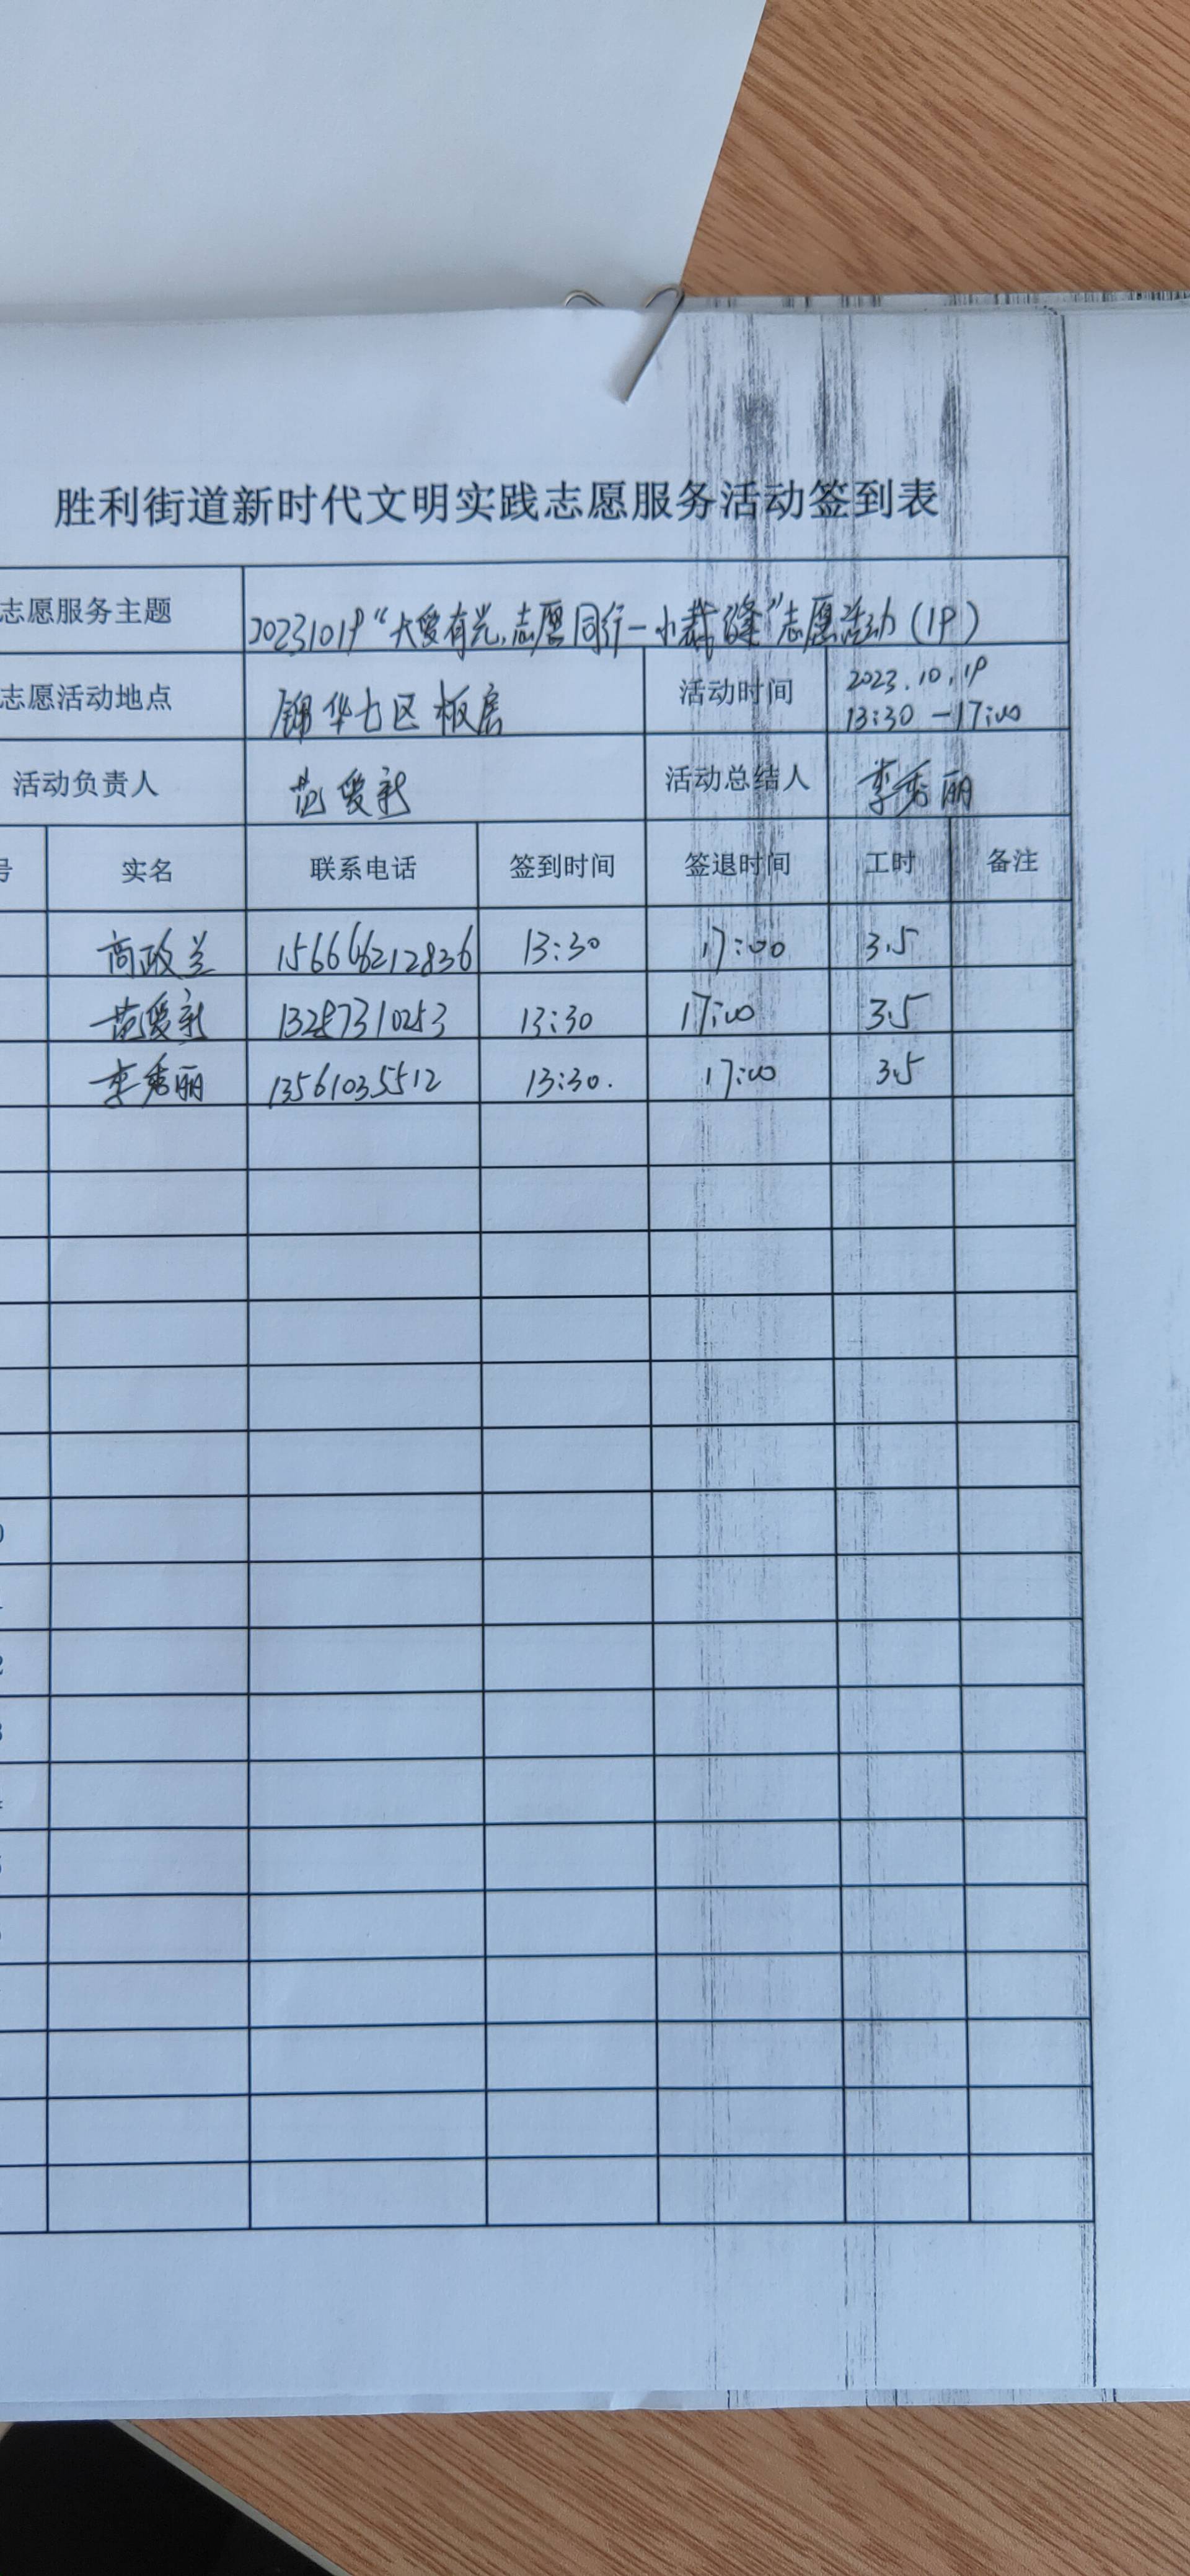 胜利街道新时代文明实践志愿服务活动签到表
志愿服务主题 20231019“大爱有光,志愿同行一小裁缝”志愿活动(19)
志愿活动地点 锦华七区板房 活动时间 2023.10.19
13:30-17:00
活动负责人 范爱新 活动总结人 李秀丽
号 实名 联系电话 签到时间 签退时间 工时 备注
商政兰 13:30 17:00 3.5
范爱新 13287310253 13:30 17:00 3.5
李秀丽 13561035512 13:30. 17:00 3.5
0
2
3